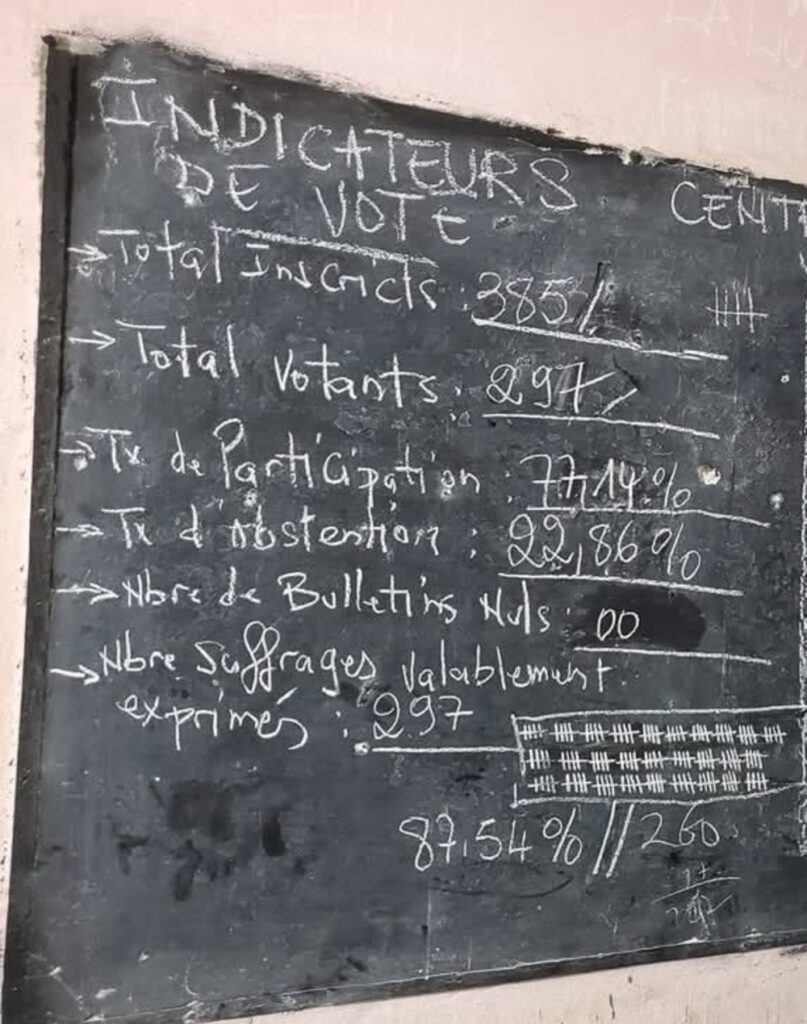 INDICATEURS
DE VOTE
CENT
→ Total Inscricts : 385/
→ Total Votants : 297
→ Tx de Participation : 77,14%
→ Tx d'Abstention : 22,86%
→ Nbre de Bulletins Nuls : 00
→ Nbre Suffrages Valablement
exprimés : 297
87.54% // 260